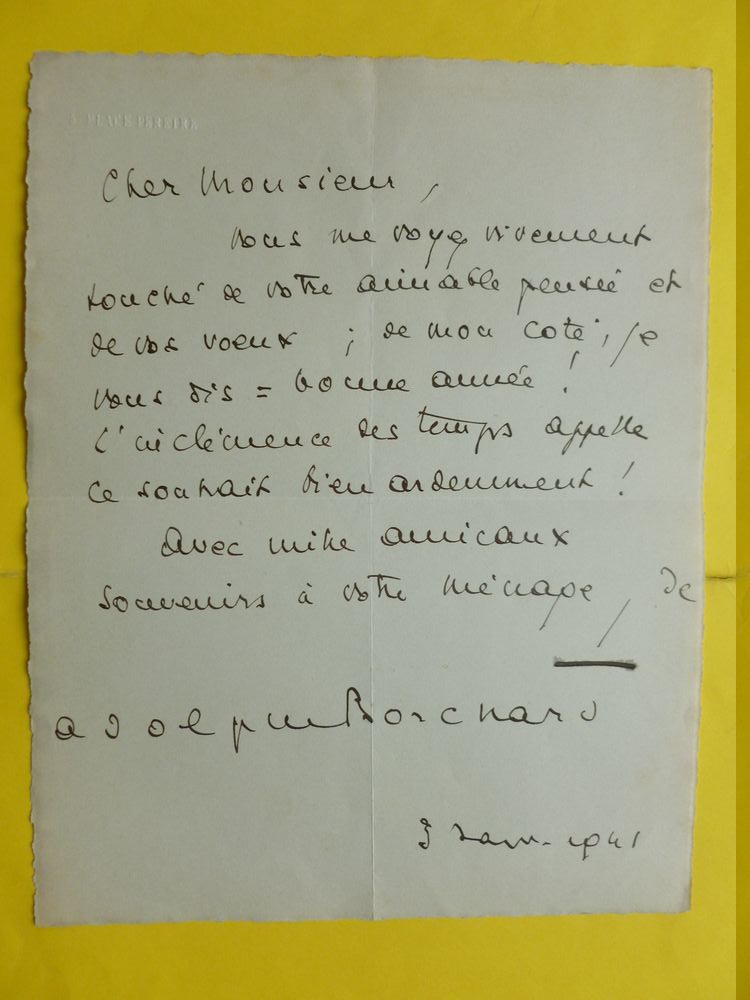 5 PLACE PEREIRE
Cher Monsieur,
vous me voyez vivement
touché de votre aimable pensée et
de vos voeux ; de mon coté, je
vous dis = bonne année !
L'inclémence des temps appelle
ce souhait bien ardemment !
Avec mille amicaux
souvenirs à votre ménage, de
adolphe Borchard
3 Janv. 1941